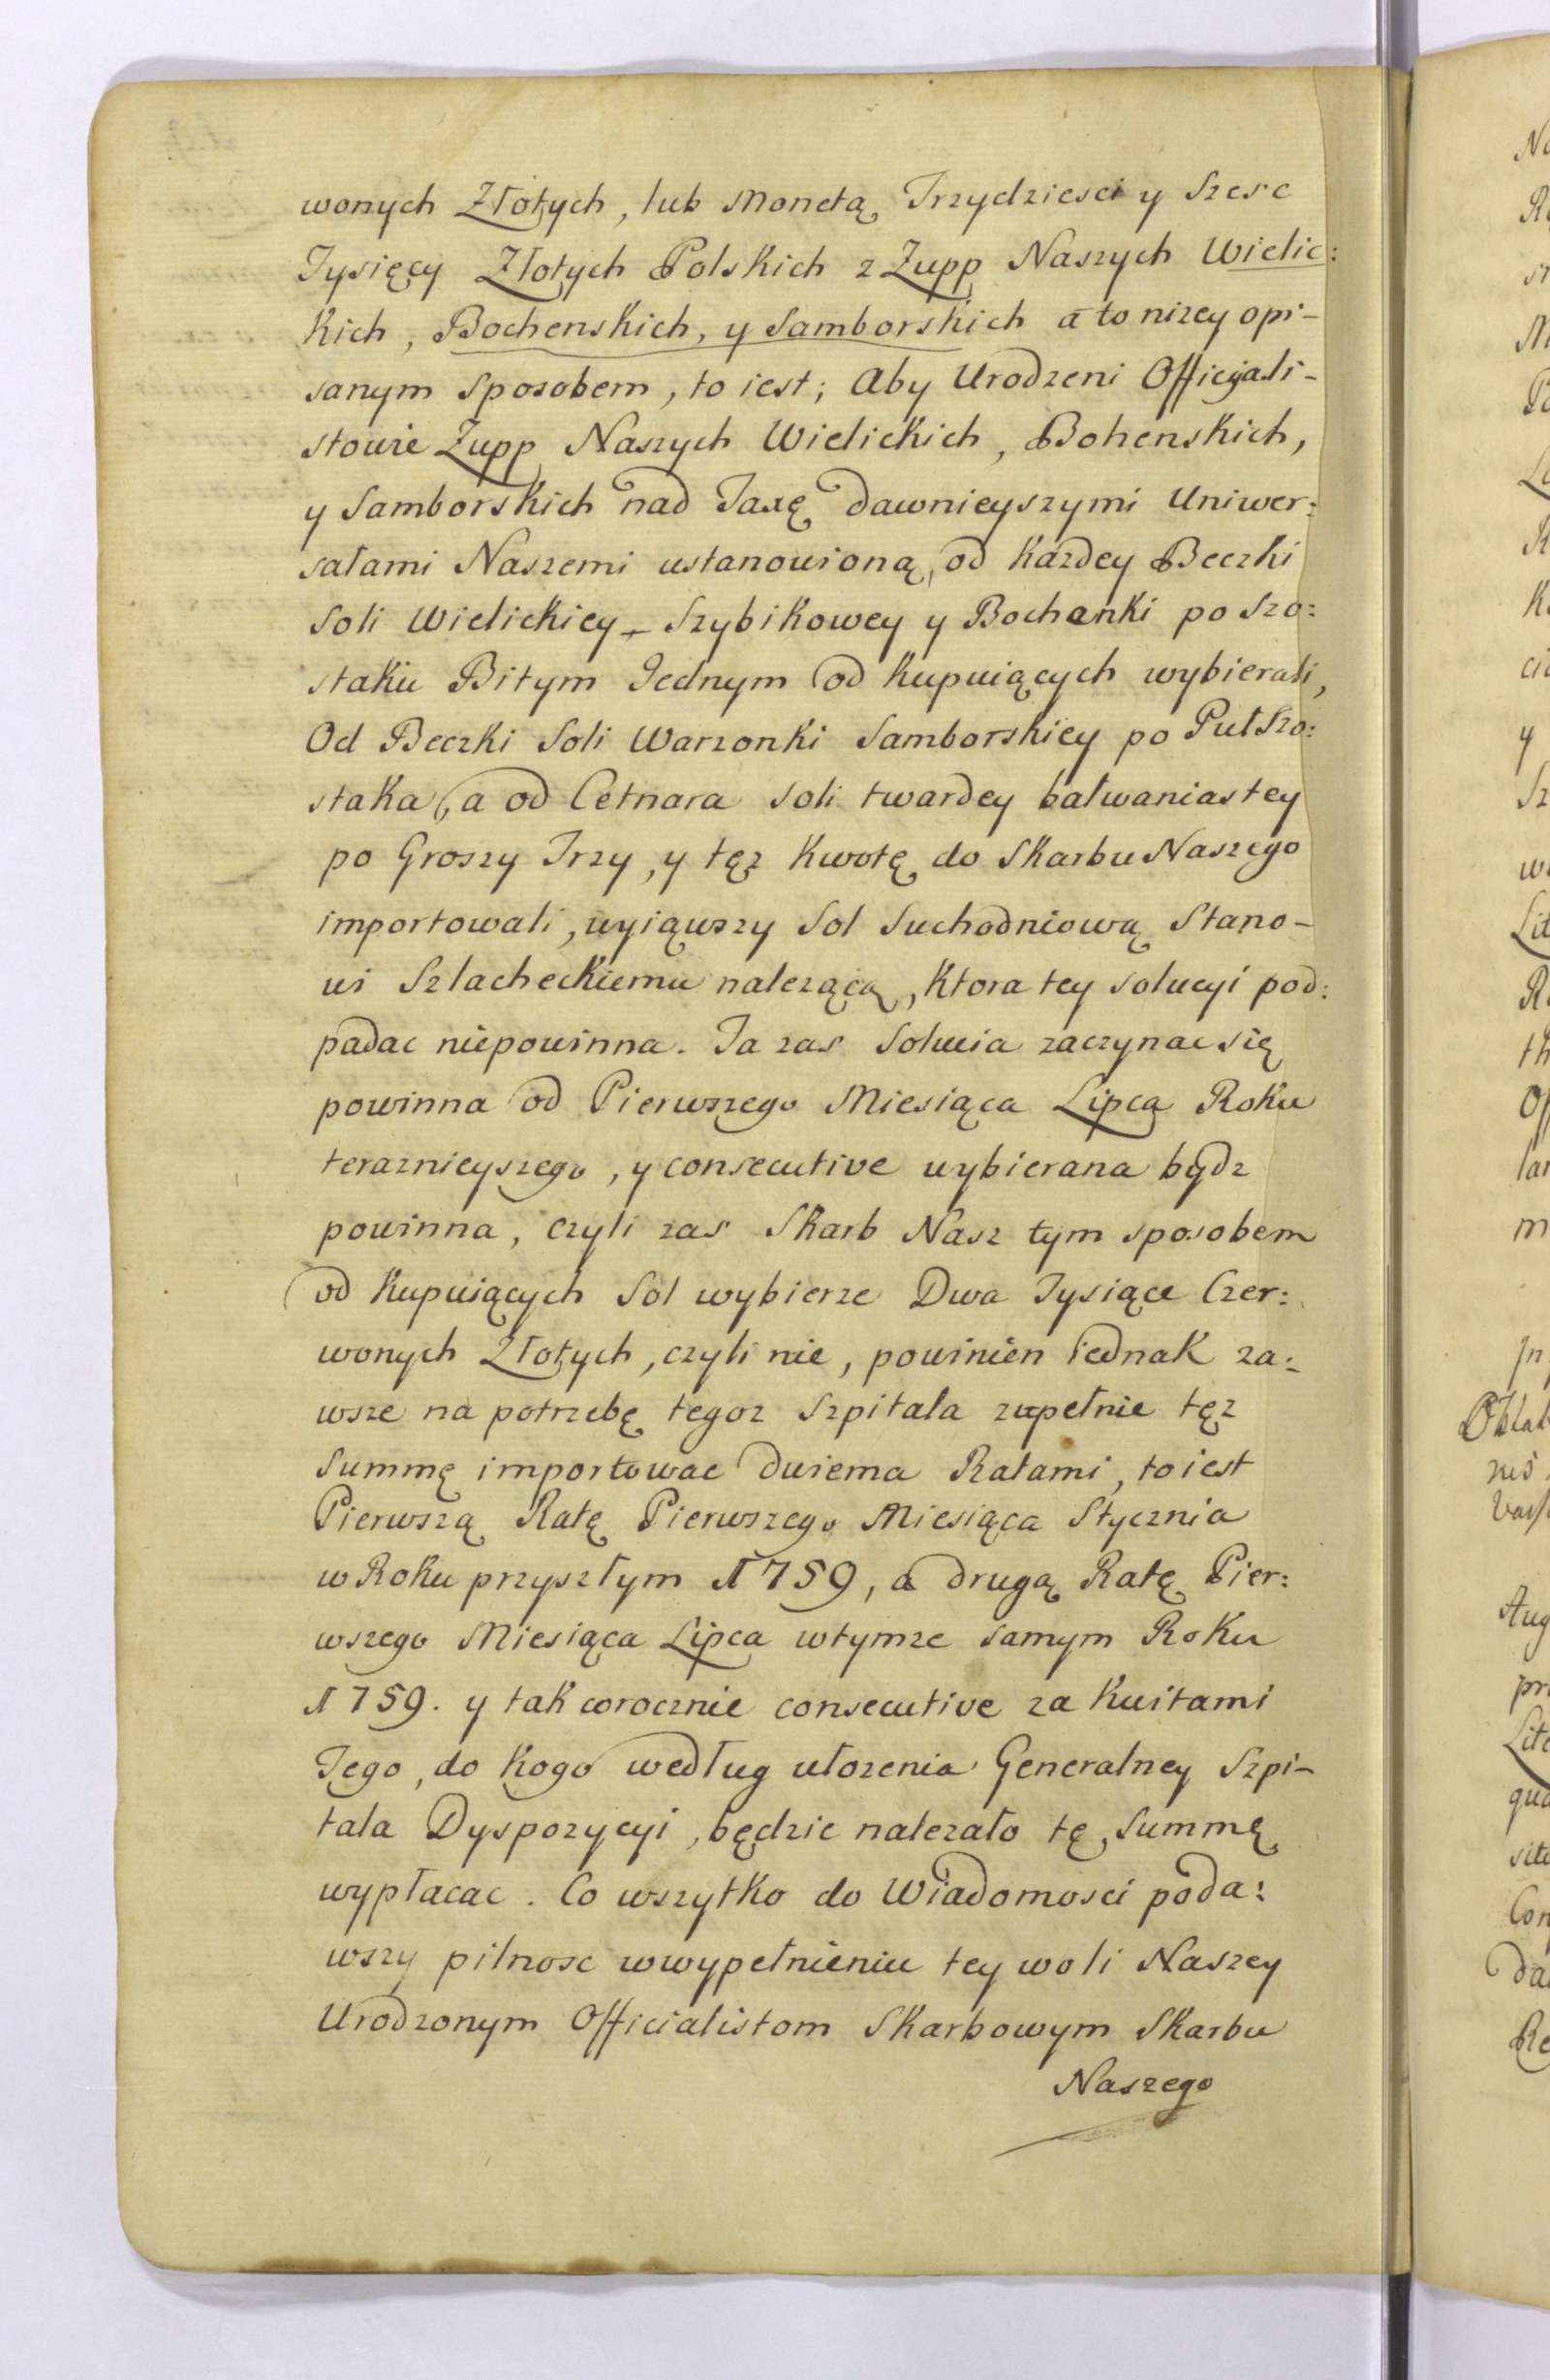 wonych Złotych, lub Monetą Trzydziesci y Szesc
Tysięcy Złotych Polskich z Zupp Naszych Wielic:
kich, Bochenskich, y Samborskich a to nizey opi-
sanym Sposobem, to iest; Aby Urodzeni Officyali-
stowie Zupp Naszych Wielickich, Bohenskich,
y Samborskich nad Taxę dawnieyszymi Uniwer:
sałami Naszemi ustanowioną, od kazdey Beczki
Soli Wielickiey Szybikowey y Bochenki po Szo:
staku Bitym Jednym od kupuiących wybierali,
Od Beczki Soli Warzonki Samborskiey po Puł Szo:
staka, a od Cetnara soli twardey bałwaniastey
po Groszy Trzy, y tęz kwotę do Skarbu Naszego
importowali, wyiąwszy Sol Suchodniową Stano-
wi Szlacheckiemu nalezącą, ktora tey solucyi pod:
padac niepowinna. Ta zas Solucia zaczynac się
powinna od Pierwszego Miesiąca Lipca Roku
teraznieyszego, y consecutive wybierana bydz
powinna, czyli zas Skarb Nasz tym sposobem
od kupuiących Sol wybierze Dwa Tysiące Czer:
wonych Złotych, czyli nie, powinien iednak za:
wsze na potrzebę tegoz Szpitala zupełnie tęz
Summę importowac dwiema Ratami, to iest
Pierwszą Ratę Pierwszego Miesiąca Stycznia
w Roku przyszłym 1759, a drugą Ratę Pier:
wszego Miesiąca Lipca wtymze samym Roku
1759. y tak corocznie consecutive za kwitami
Tego, do kogo według ułozenia Generalney Szpi-
tala Dyspozycyi, będzie nalezało tę Summę
wypłacac. Co wszytko do Wiadomosci poda:
wszy pilnosc wwypełnieniu tey woli Naszey
Urodzonym Officialistom Skarbowym Skarbu
Naszego